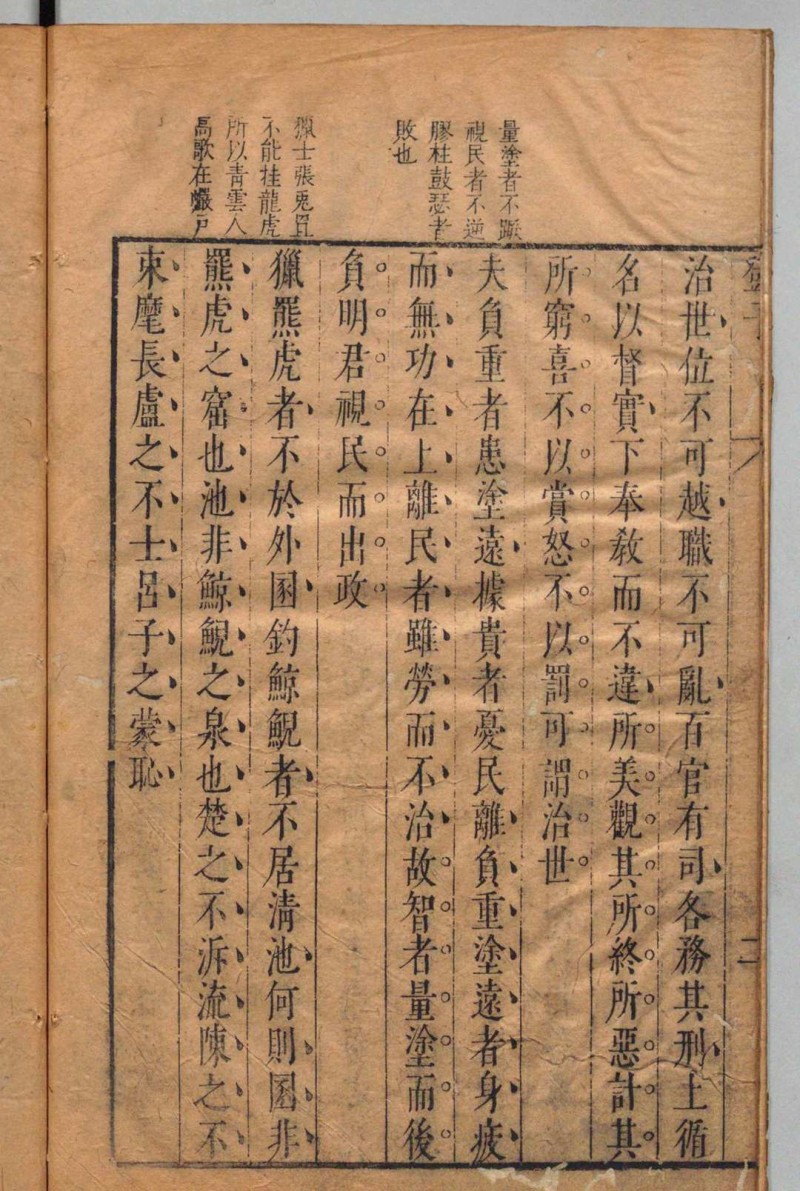 量塗者不蹶
視民者不逆
膠柱鼓瑟者
敗也
獵士張兎罝
不能挂龍虎
所以青雲人
高歌在巖戸
二
治世位不可越職不可亂百官有司各務其刑上循
名以督實下奉敎而不違所美觀其所終所惡計其
所窮喜不以賞怒不以罰可謂治世
夫負重者患塗遠據貴者憂民離負重塗遠者身疲
而無功在上離民者雖勞而不治故智者量塗而後
負明君視民而出政
獵羆虎者不於外圂釣鯨鯢者不居清池何則圂非
羆虎之窟也池非鯨鯢之泉也楚之不泝流陳之不
束麾長盧之不士呂子之蒙恥